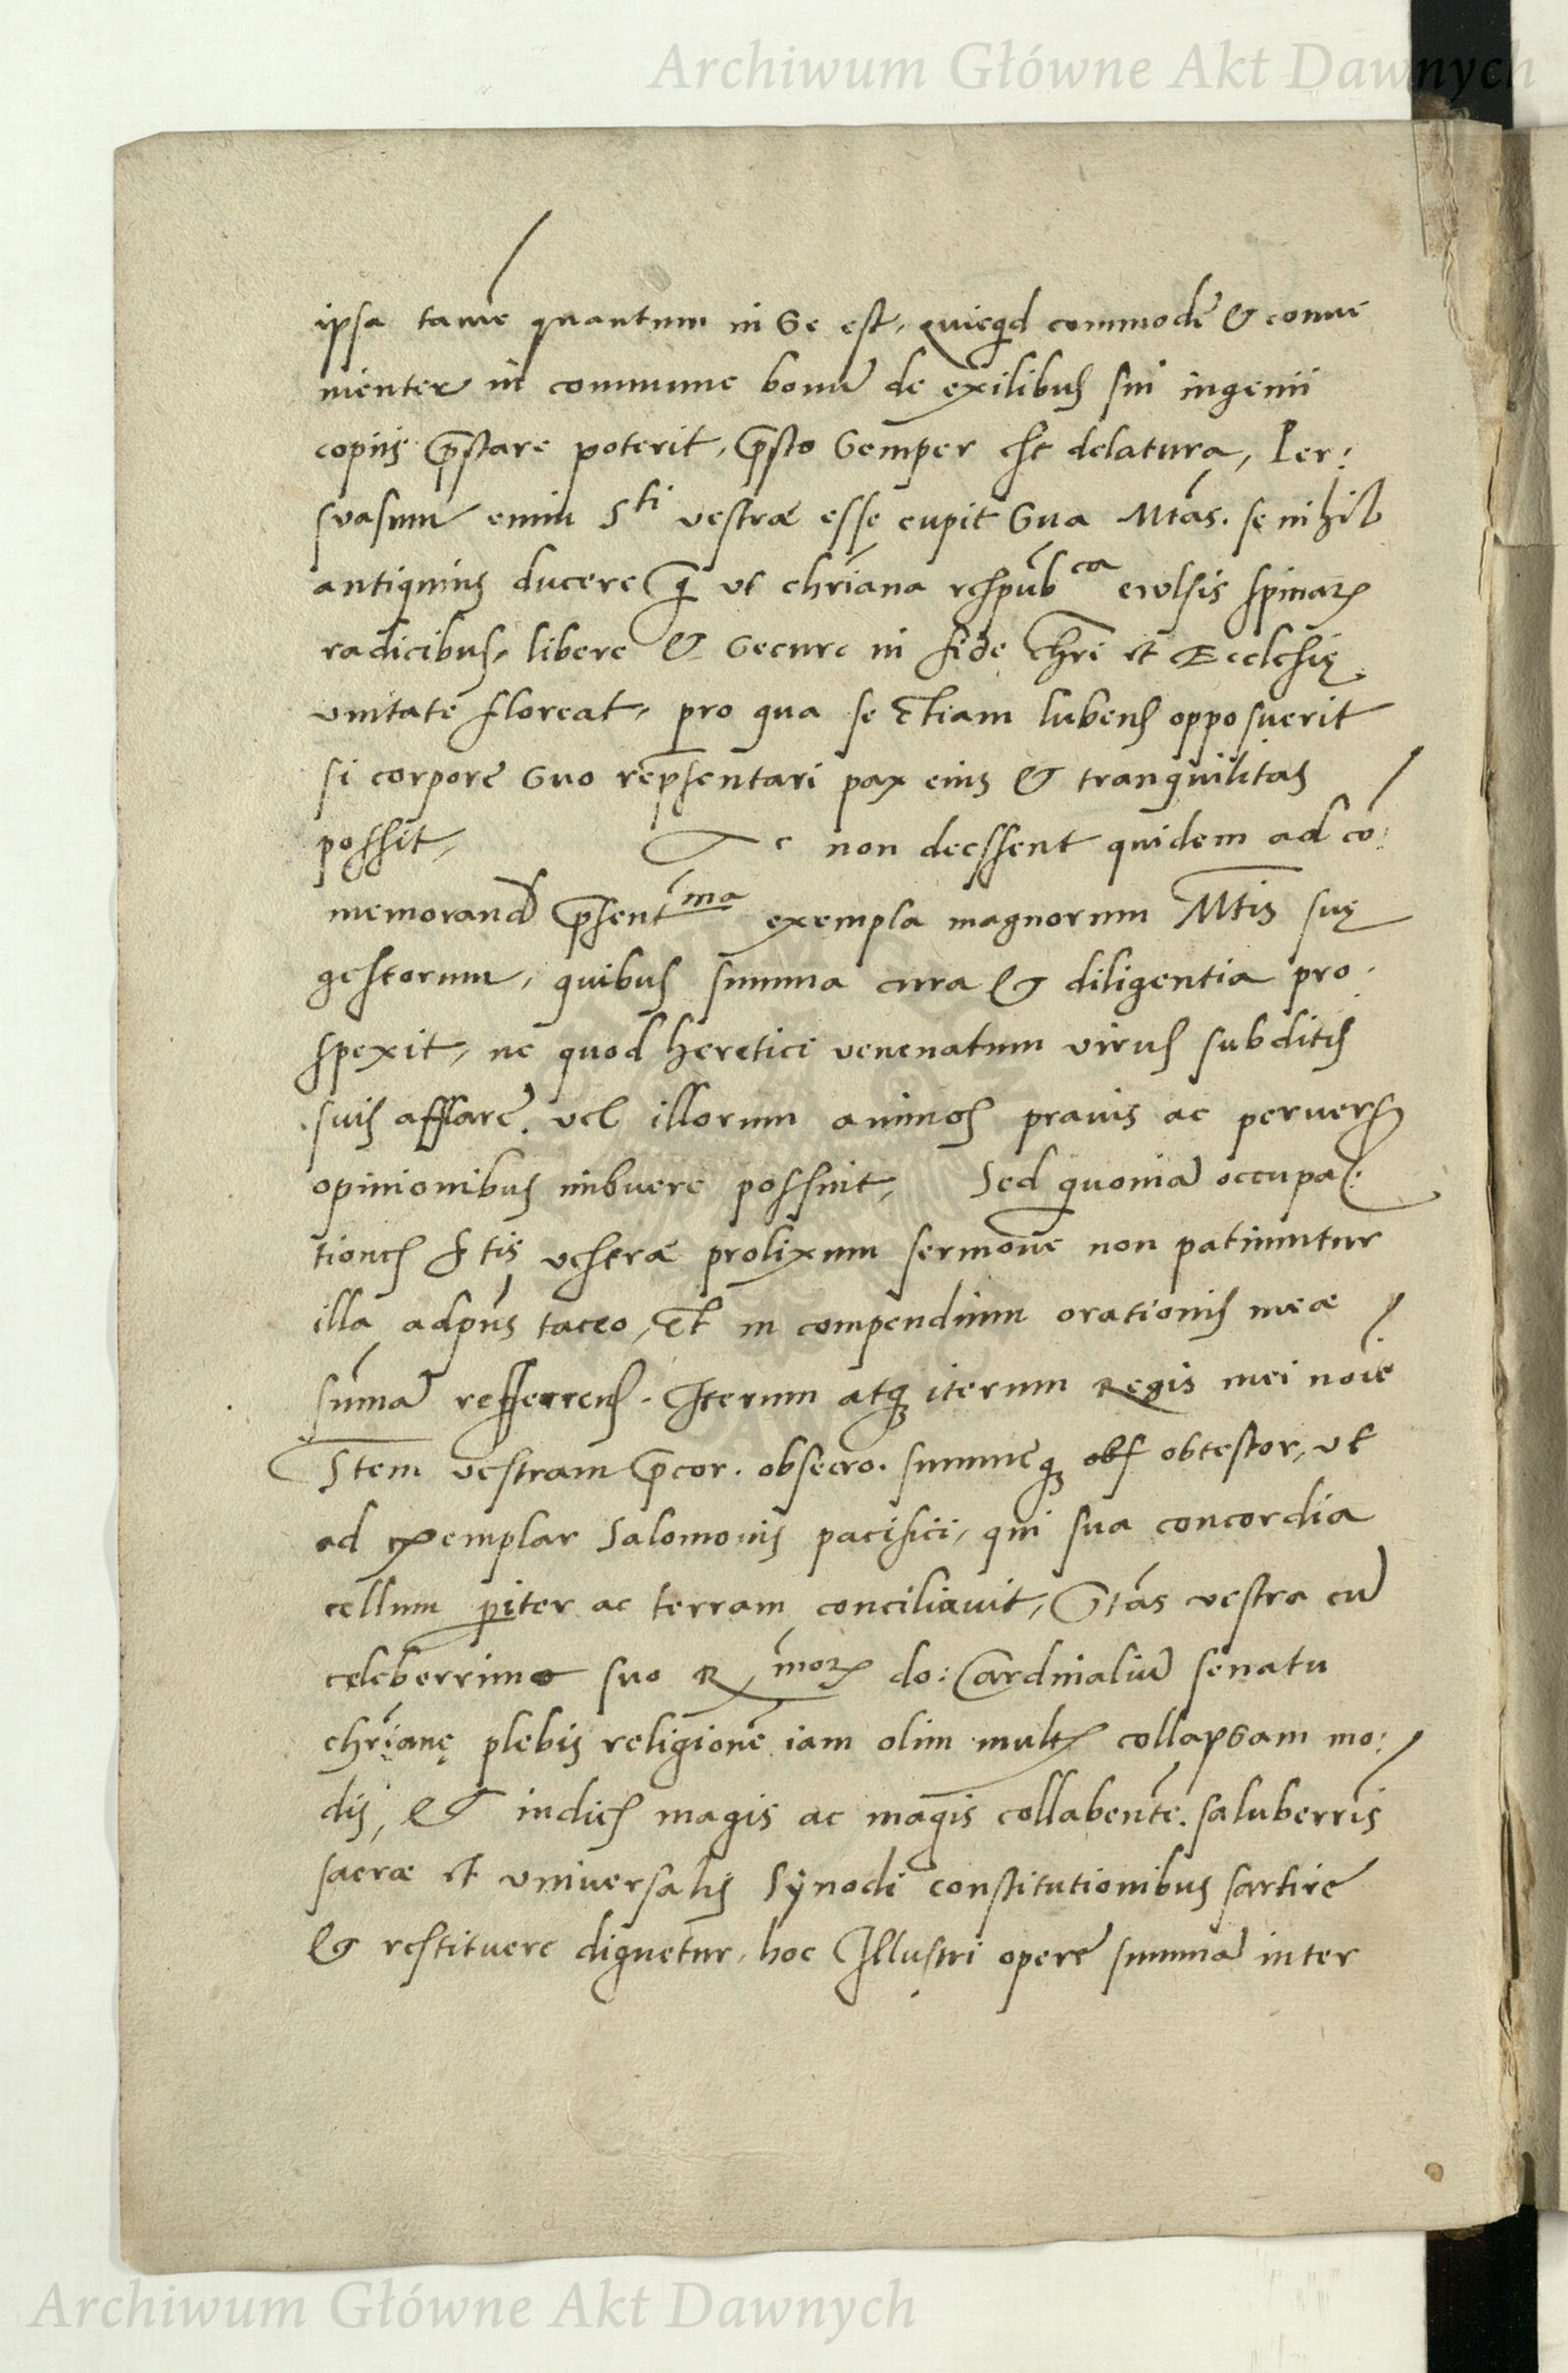 Archiwum Główne Akt Dawnych
ipsa tamē quantum in se est, quicqd commodē & conue
nienter in commune bonū de exilibus sui ingenii
copiis p̄stare poterit, p̄sto semper est delatura, Per:
suasum enim Sti vestræ esse cupit sua Mtas. se nihil
antiquius ducere q̄ ut chriana respubca evulsis spinaꝝ
radicibus, libere & secure in fide Chri et Ecclesię
vnitate floreat, pro qua se etiam lubens opposuerit
si corpore suo repn̄sentari pax eius & tranquilitas
possit, Ac non deessent quidem ad cō:
memorand p̄sentma exempla magnorum Mtis suę
gestorum, quibus summa cura & diligentia pro:
spexit, ne quod heretici venenatum virus subditis
suis afflare, vel illorum animos prauis ac peruersis
opinionibus imbuere possint, Sed quoniā occupa:
tiones Stis vestræ prolixum sermonē non patiuntur
illa adpn̄s taceo, Et in compendium orationis meæ
sum̄ā refferrens. Iterum atqꝫ iterum Regis mei noīe
Stem vestram p̄cor. obsecro. summeqꝫ obs obtestor, ut
ad exemplar Salomonis pacifici, qui sua concordia
cellum piter ac terram conciliauit, Stas vestra cū
celeberrimo suo R moꝝ do: Cardinaliū senatu
chrianę plebis religionē iam olim mult collapsam mo:
dis, & indies magis ac magis collabentē. saluberris
sacræ et vniuersalis Synodi constitutionibus sartire
& restituere dignetur, hoc Illustri opere summā inter
Archiwum Główne Akt Dawnych